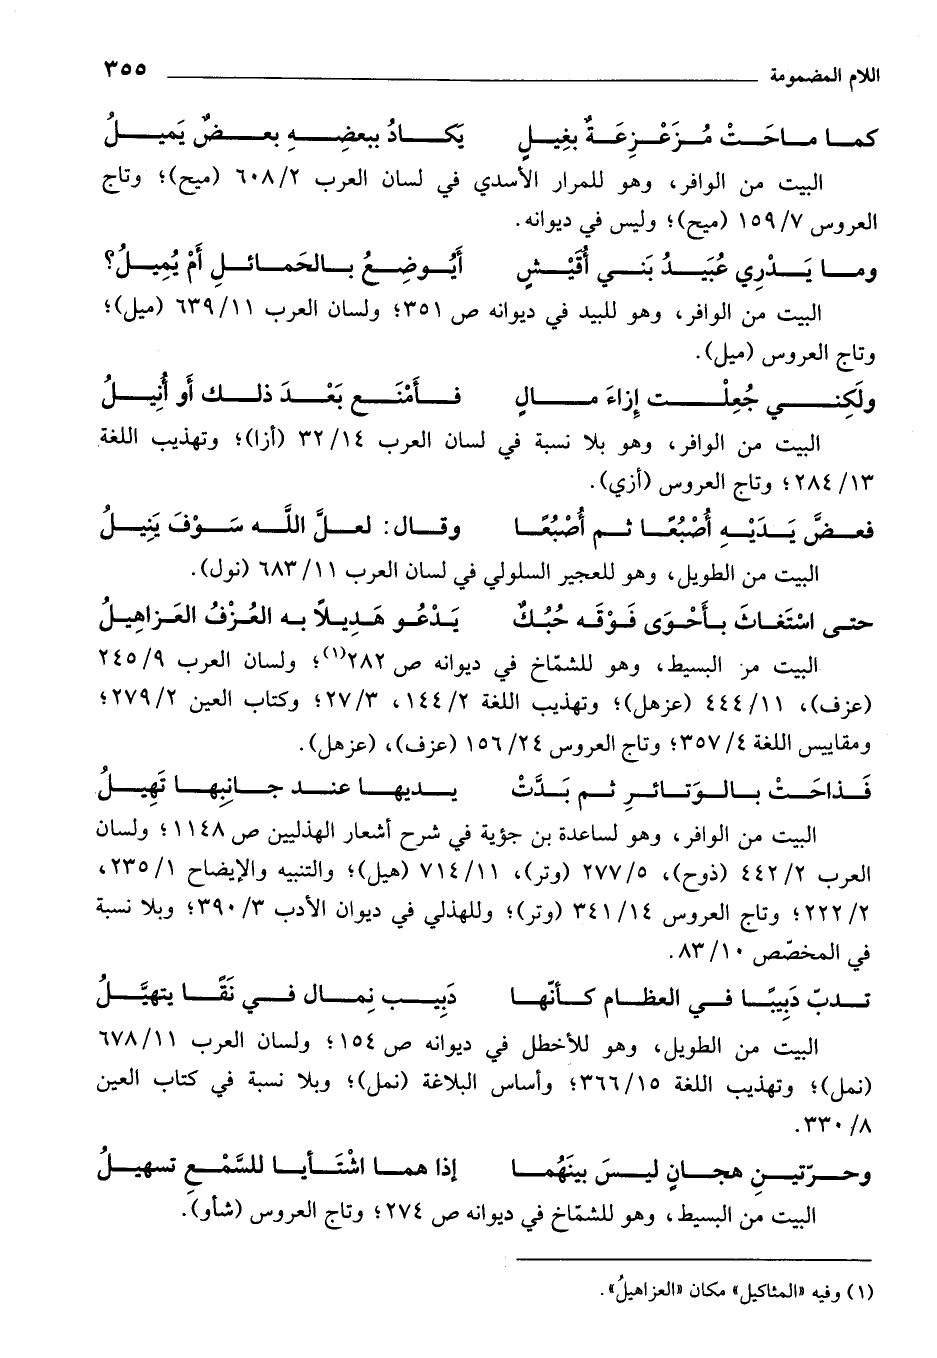 اللام المضمومة ٣٥٥
كما ماحَتْ مُزَعْزِعَةٌ بغِيلٍ يَكادُ ببعضِهِ بعضٌ يَميلُ
البيت من الوافر، وهو للمرار الأسدي في لسان العرب ٦٠٨/٢ (ميح)؛ وتاج
العروس ١٥٩/٧ (ميح)؛ وليس في ديوانه.
وما يَدْرِي عُبَيدُ بَني أُقَيْشٍ أَيُوضِعُ بالحَمائلِ أَمْ يُمِيلُ؟
البيت من الوافر، وهو للبيد في ديوانه ص ٣٥١؛ ولسان العرب ٦٣٩/١١ (ميل)؛
وتاج العروس (ميل).
ولَكِني جُعِلْت إزاءَ مالٍ فأَمْنَع بَعْدَ ذلك أَو أُنِيلُ
البيت من الوافر، وهو بلا نسبة في لسان العرب ٣٢/١٤ (أزا)؛ وتهذيب اللغة
٢٨٤/١٣؛ وتاج العروس (أزي).
فعضَّ يَدَيْهِ أُصْبُعًا ثم أُصْبُعًا وقال: لعلَّ اللَّه سَوْفَ يَنِيلُ
البيت من الطويل، وهو للعجير السلولي في لسان العرب ٦٨٣/١١ (نول).
حتى اسْتَغاثَ بأَحْوَى فَوْقَه حُبُكٌ يَدْعُو هَدِيلاً به العُزْفُ العَزاهِيلُ
البيت من البسيط، وهو للشمّاخ في ديوانه ص ٢٨٢(١)؛ ولسان العرب ٢٤٥/٩
(عزف)، ٤٤٤/١١ (عزهل)؛ وتهذيب اللغة ١٤٤/٢، ٢٧/٣؛ وكتاب العين ٢٧٩/٢؛
ومقاييس اللغة ٣٥٧/٤؛ وتاج العروس ١٥٦/٢٤ (عزف)، (عزهل).
فَذاحَتْ بالوَتائرِ ثم بَدَّتْ يديها عند جانِبها تَهِيلُ
البيت من الوافر، وهو لساعدة بن جؤية في شرح أشعار الهذليين ص ١١٤٨؛ ولسان
العرب ٤٤٢/٢ (ذوح)، ٢٧٧/٥ (وتر)، ٧١٤/١١ (هيل)؛ والتنبيه والإيضاح ٢٣٥/١،
٢٢٢/٢؛ وتاج العروس ٣٤١/١٤ (وتر)؛ وللهذلي في ديوان الأدب ٣٩٠/٣؛ وبلا نسبة
في المخصّص ٨٣/١٠.
تدبّ دَبِيبًا في العظام كأنّها دَبِيب نِمال في نَقًا يتهيَّلُ
البيت من الطويل، وهو للأخطل في ديوانه ص ١٥٤؛ ولسان العرب ٦٧٨/١١
(نمل)؛ وتهذيب اللغة ٣٦٦/١٥؛ وأساس البلاغة (نمل)؛ وبلا نسبة في كتاب العين
٣٣٠/٨.
وحرّتينِ هجانٍ ليسَ بينَهُما إذا هما اشْتَأيا للسَّمْعِ تسهيلُ
البيت من البسيط، وهو للشمّاخ في ديوانه ص ٢٧٤؛ وتاج العروس (شأو).
(١) وفيه «المثاكيل» مكان «العزاهيلُ».